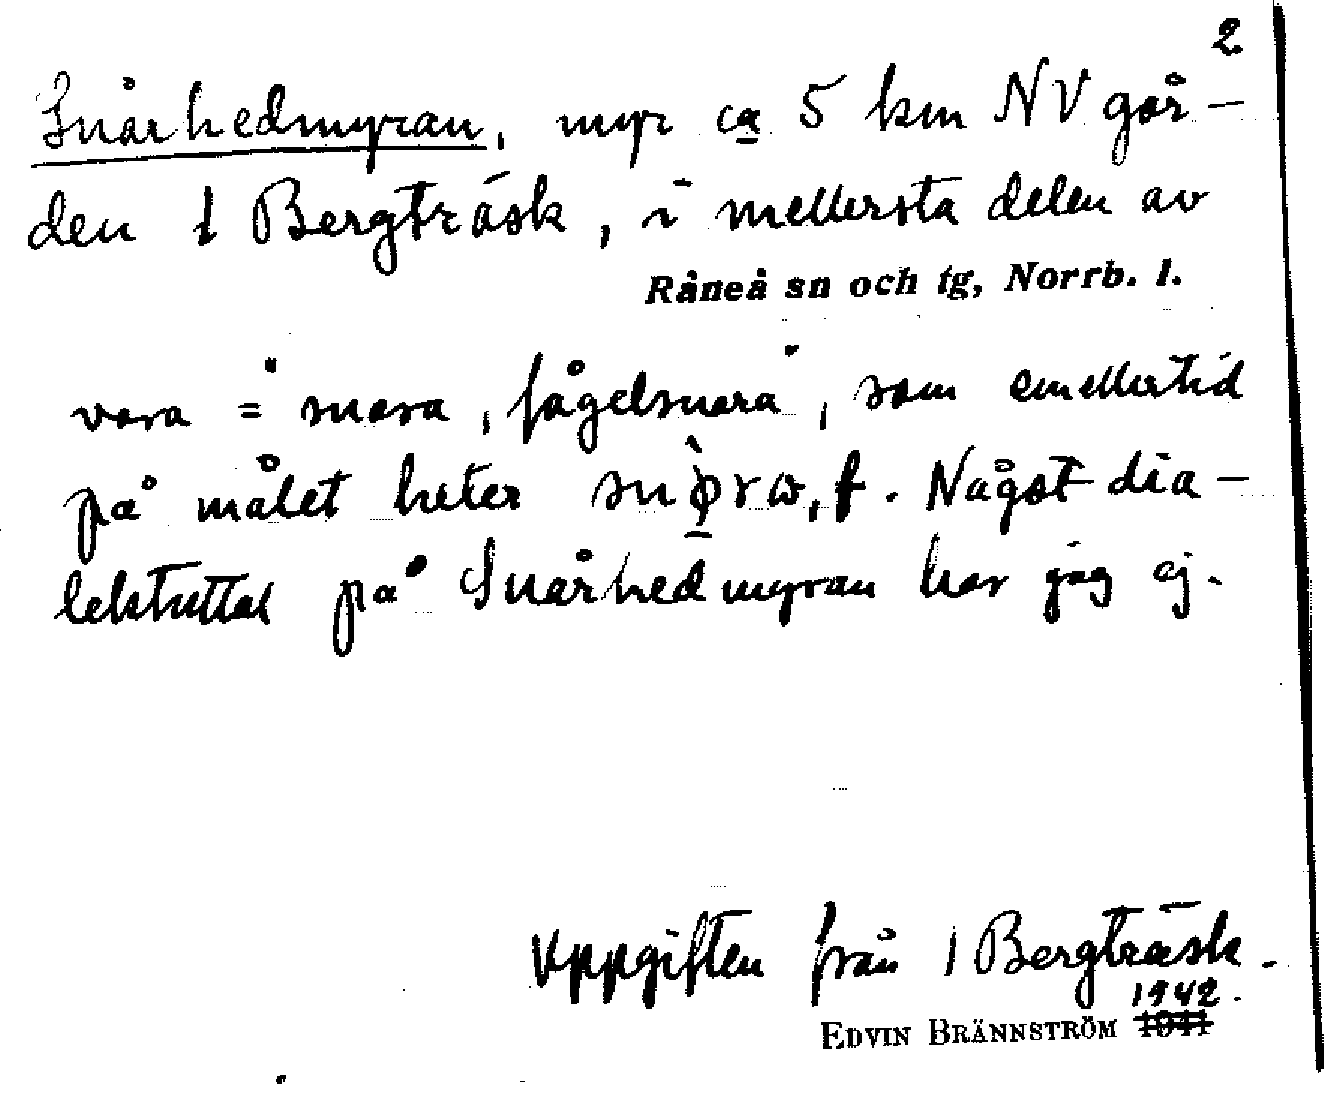 2
Snårhedmyran, myr ca 5 km NV går-
den 1 Bergträsk, i mellersta delen av
Råneå sn och tg, Norrb. l.
vara = "snara, fågelsnara", som emellertid
på målet heter snø̀rω, f. Något dia-
lektuttal på Snårhedmyran har jag ej.
Uppgiften från 1 Bergträsk.
1942.
EDVIN BRÄNNSTRÖM 1941